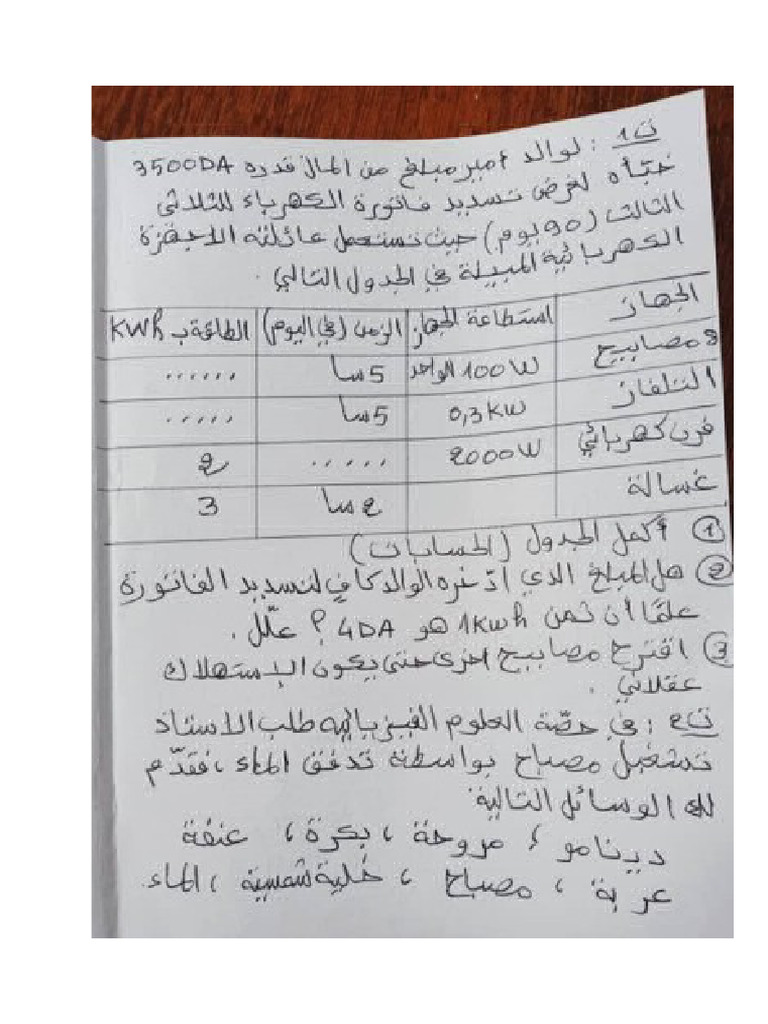 ت1: لوالد أمير مبلغ من المال قدره 3500DA
خبّأه لغرض تسديد فاتورة الكهرباء للثلاثي
الثالث (90 يوم) حيث تستعمل عائلته الأجهزة
الكهربائية المبينة في الجدول التالي.
الجهاز استطاعة الجهاز الزمن (في اليوم) الطاقة ب KWh
8 مصابيح 100W الواحد 5سا ......
التلفاز 0,3KW 5سا .....
فرن كهربائي 2000W ..... 2
غسالة 2سا 3
① أكمل الجدول (الحسابات)
② هل المبلغ الذي ادّخره الوالد كافي لتسديد الفاتورة
علمًا أن ثمن 1Kwh هو 4DA؟ علّل.
③ اقترح مصابيح اخرى حتى يكون الإستهلاك
عقلاني.
ت2: في حصّة العلوم الفيزيائية طلب الاستاذ
تشغيل مصباح بواسطة تدفق الماء، فقدّم
لك الوسائل التالية:
دينامو، مروحة، بكرة، عنفة
عربة، مصباح، خلية شمسية، الماء.